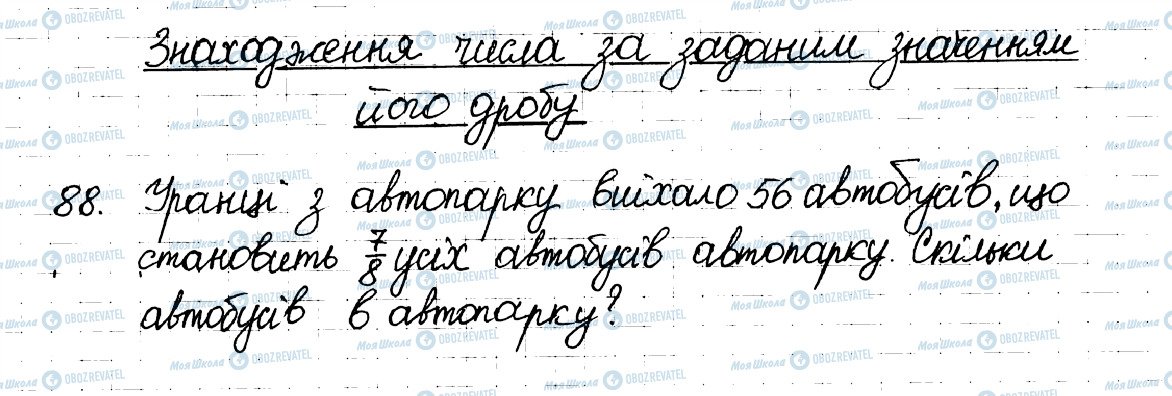 Знаходження числа за заданим значенням
його дробу
88. Уранці з автопарку виїхало 56 автобусів, що
становить 7/8 усіх автобусів автопарку. Скільки
автобусів в автопарку?